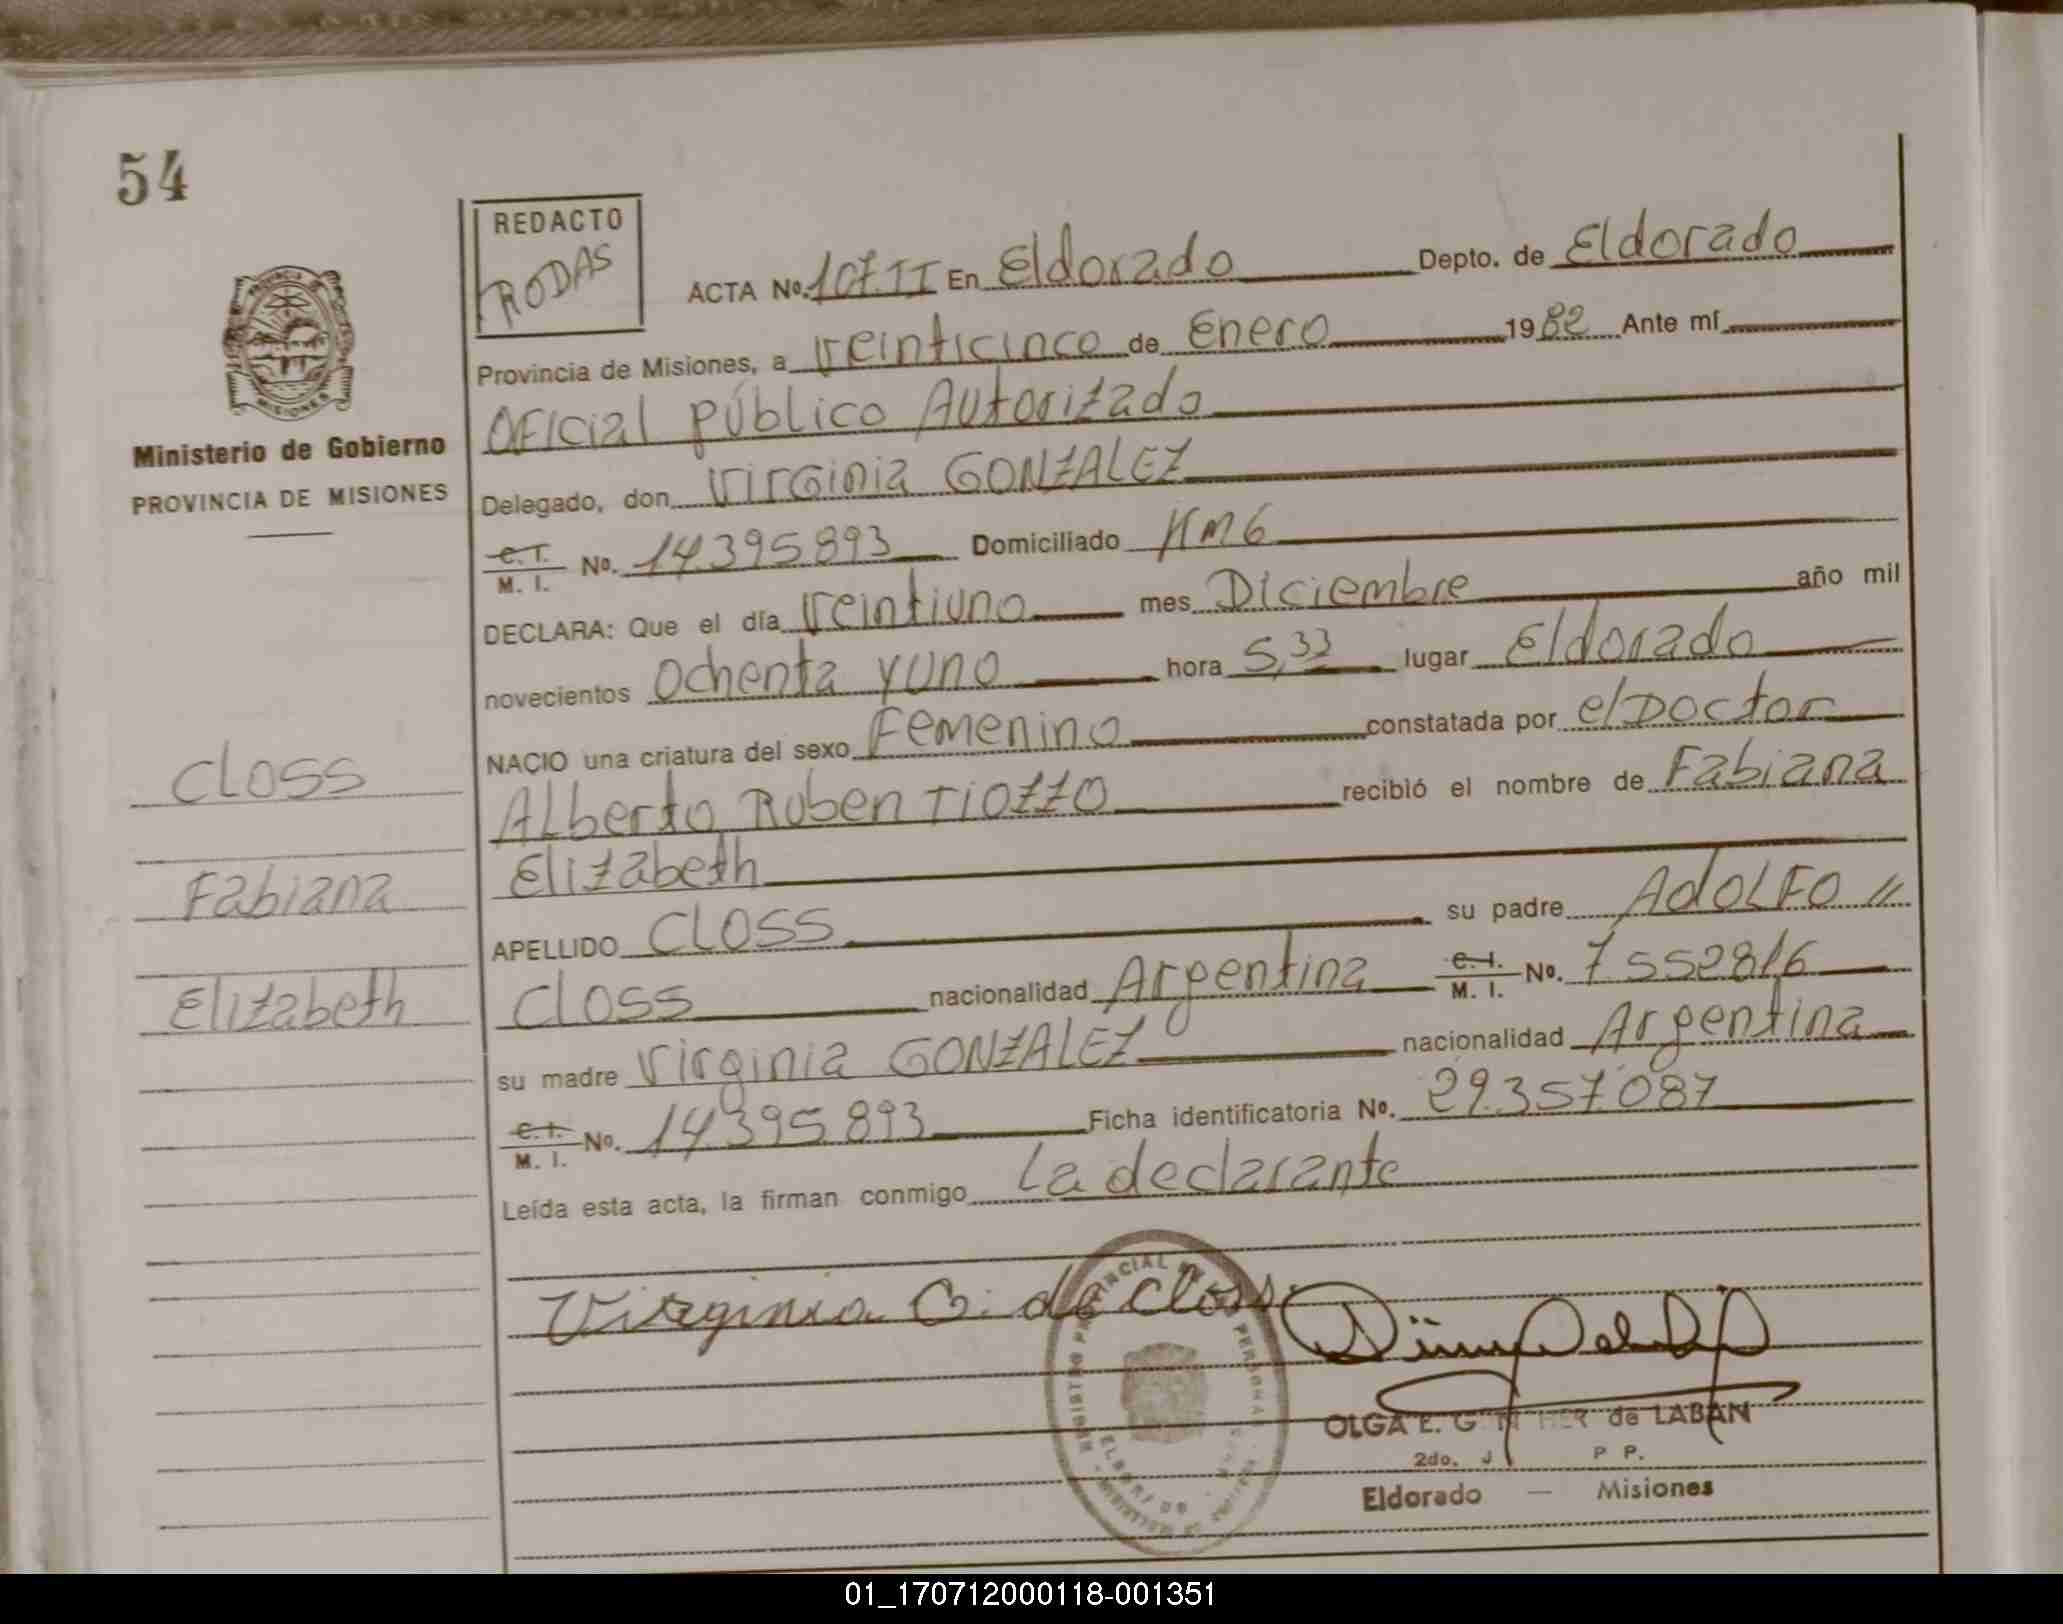 54
REDACTO
RODAS
ACTA No. 107.II En Eldorado Depto. de Eldorado
Provincia de Misiones, a veinticinco de Enero 1982 Ante mí
Oficial público Autorizado
Delegado, don Virginia GONZALEZ
C. I. M. I. No. 14.395.893 Domiciliado Km6
DECLARA: Que el día veintiuno mes Diciembre año mil
novecientos Ochenta y uno hora 5,33 lugar Eldorado
NACIO una criatura del sexo Femenino constatada por el Doctor
Alberto Ruben TIOZZO recibió el nombre de Fabiana
Elizabeth
APELLIDO CLOSS su padre ADOLFO //
Closs nacionalidad Argentina C. I. M. I. No. 7.552.816
su madre Virginia GONZALEZ nacionalidad Argentina
C. I. M. I. No. 14.395.893 Ficha identificatoria No. 29.357.087
Leída esta acta, la firman conmigo La declarante
Virginia G. de Closs
OLGA E. de LABAN
2do. J P P.
Eldorado — Misiones
PROVINCIA DE
MISIONES
Ministerio de Gobierno
PROVINCIA DE MISIONES
Closs
Fabiana
Elizabeth
01_170712000118-001351